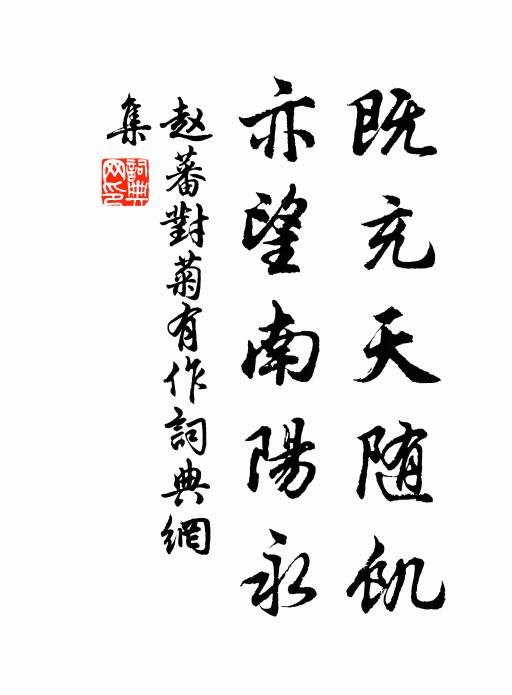 既充天随飢
亦望南陽永
赵蕃對菊有作詞典網
集
詞典網印